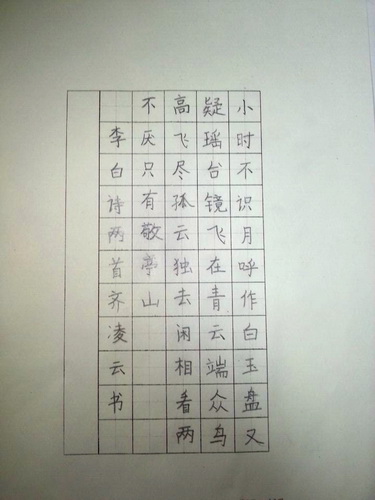 小时不识月呼作白玉盘又
疑瑶台镜飞在青云端众鸟
高飞尽孤云独去闲相看两
不厌只有敬亭山
李白诗两首齐凌云书